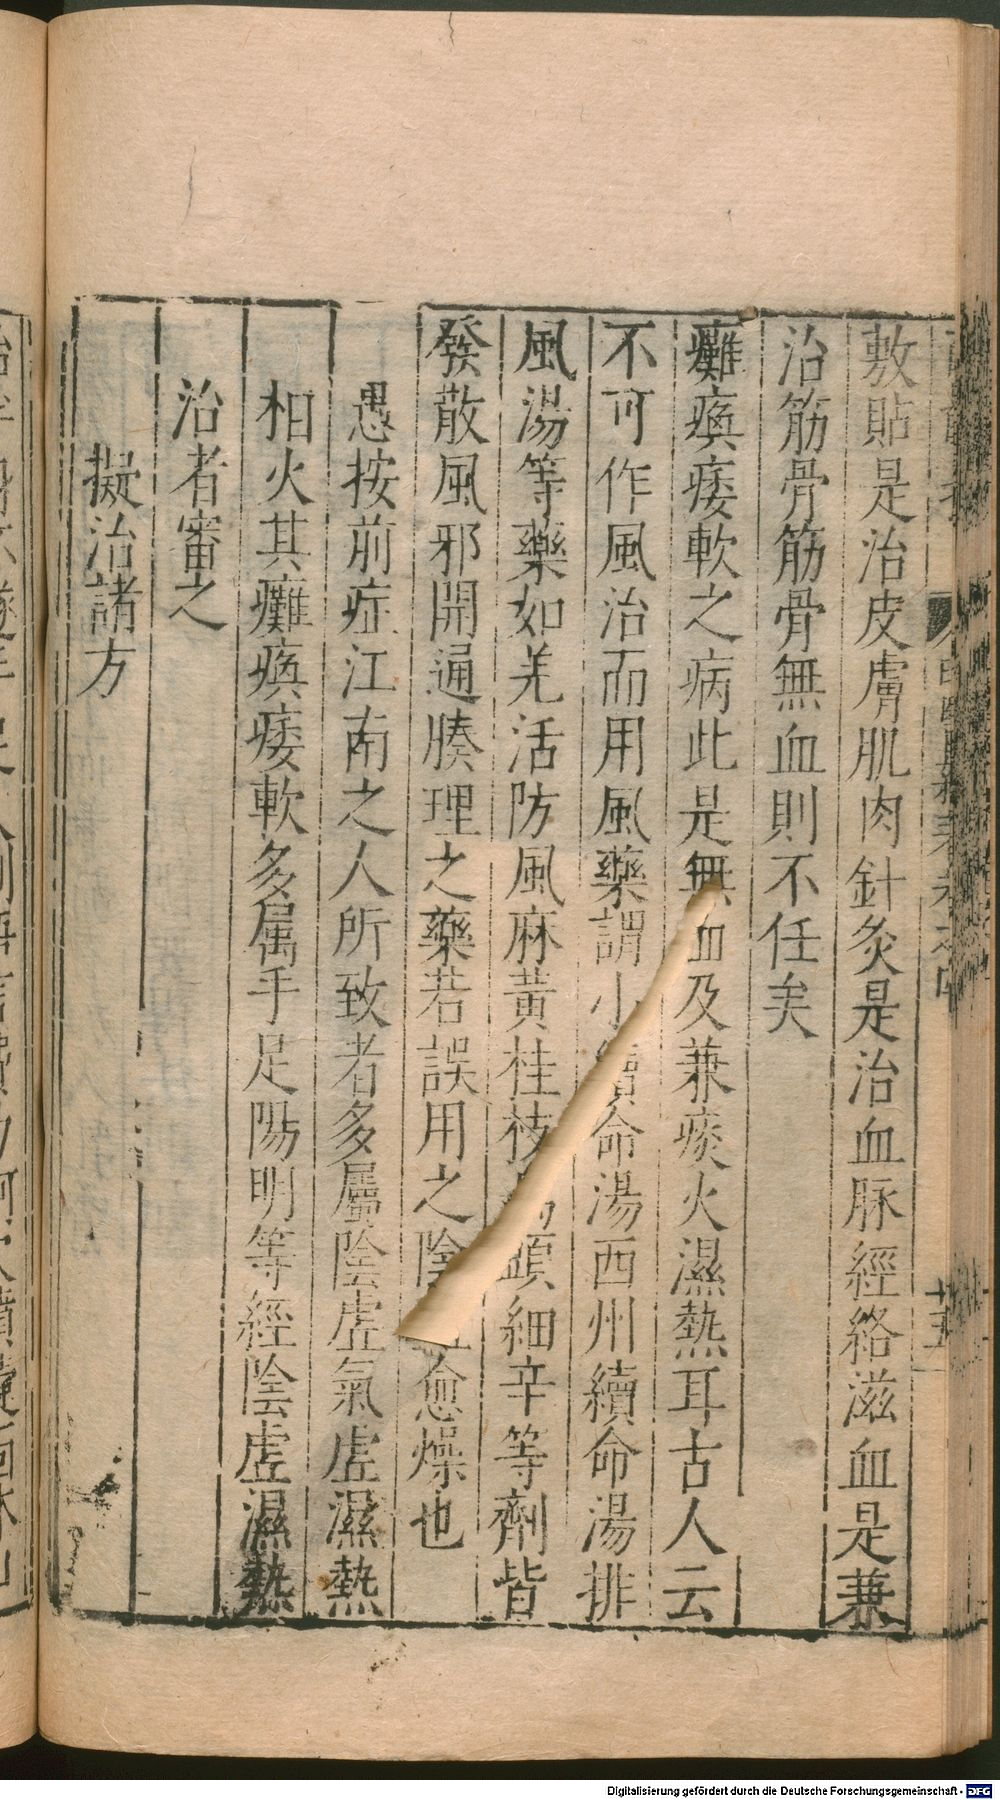 敷貼是治皮膚肌肉針灸是治血脉經絡滋血是兼
治筋骨筋骨無血則不任矣
癱瘓痿軟之病此是無血及兼痰火濕熱耳古人云
不可作風治而用風藥謂小續命湯西州續命湯排
風湯等藥如羌活防風麻黃桂枝烏頭細辛等劑皆
發散風邪開通腠理之藥若誤用之陰愈燥也
愚按前症江南之人所致者多屬陰虛氣虛濕熱
相火其癱瘓痿軟多属手足陽明等經陰虛濕熱
治者審之
擬治諸方
十五
Digitalisierung gefördert durch die Deutsche Forschungsgemeinschaft - DFG